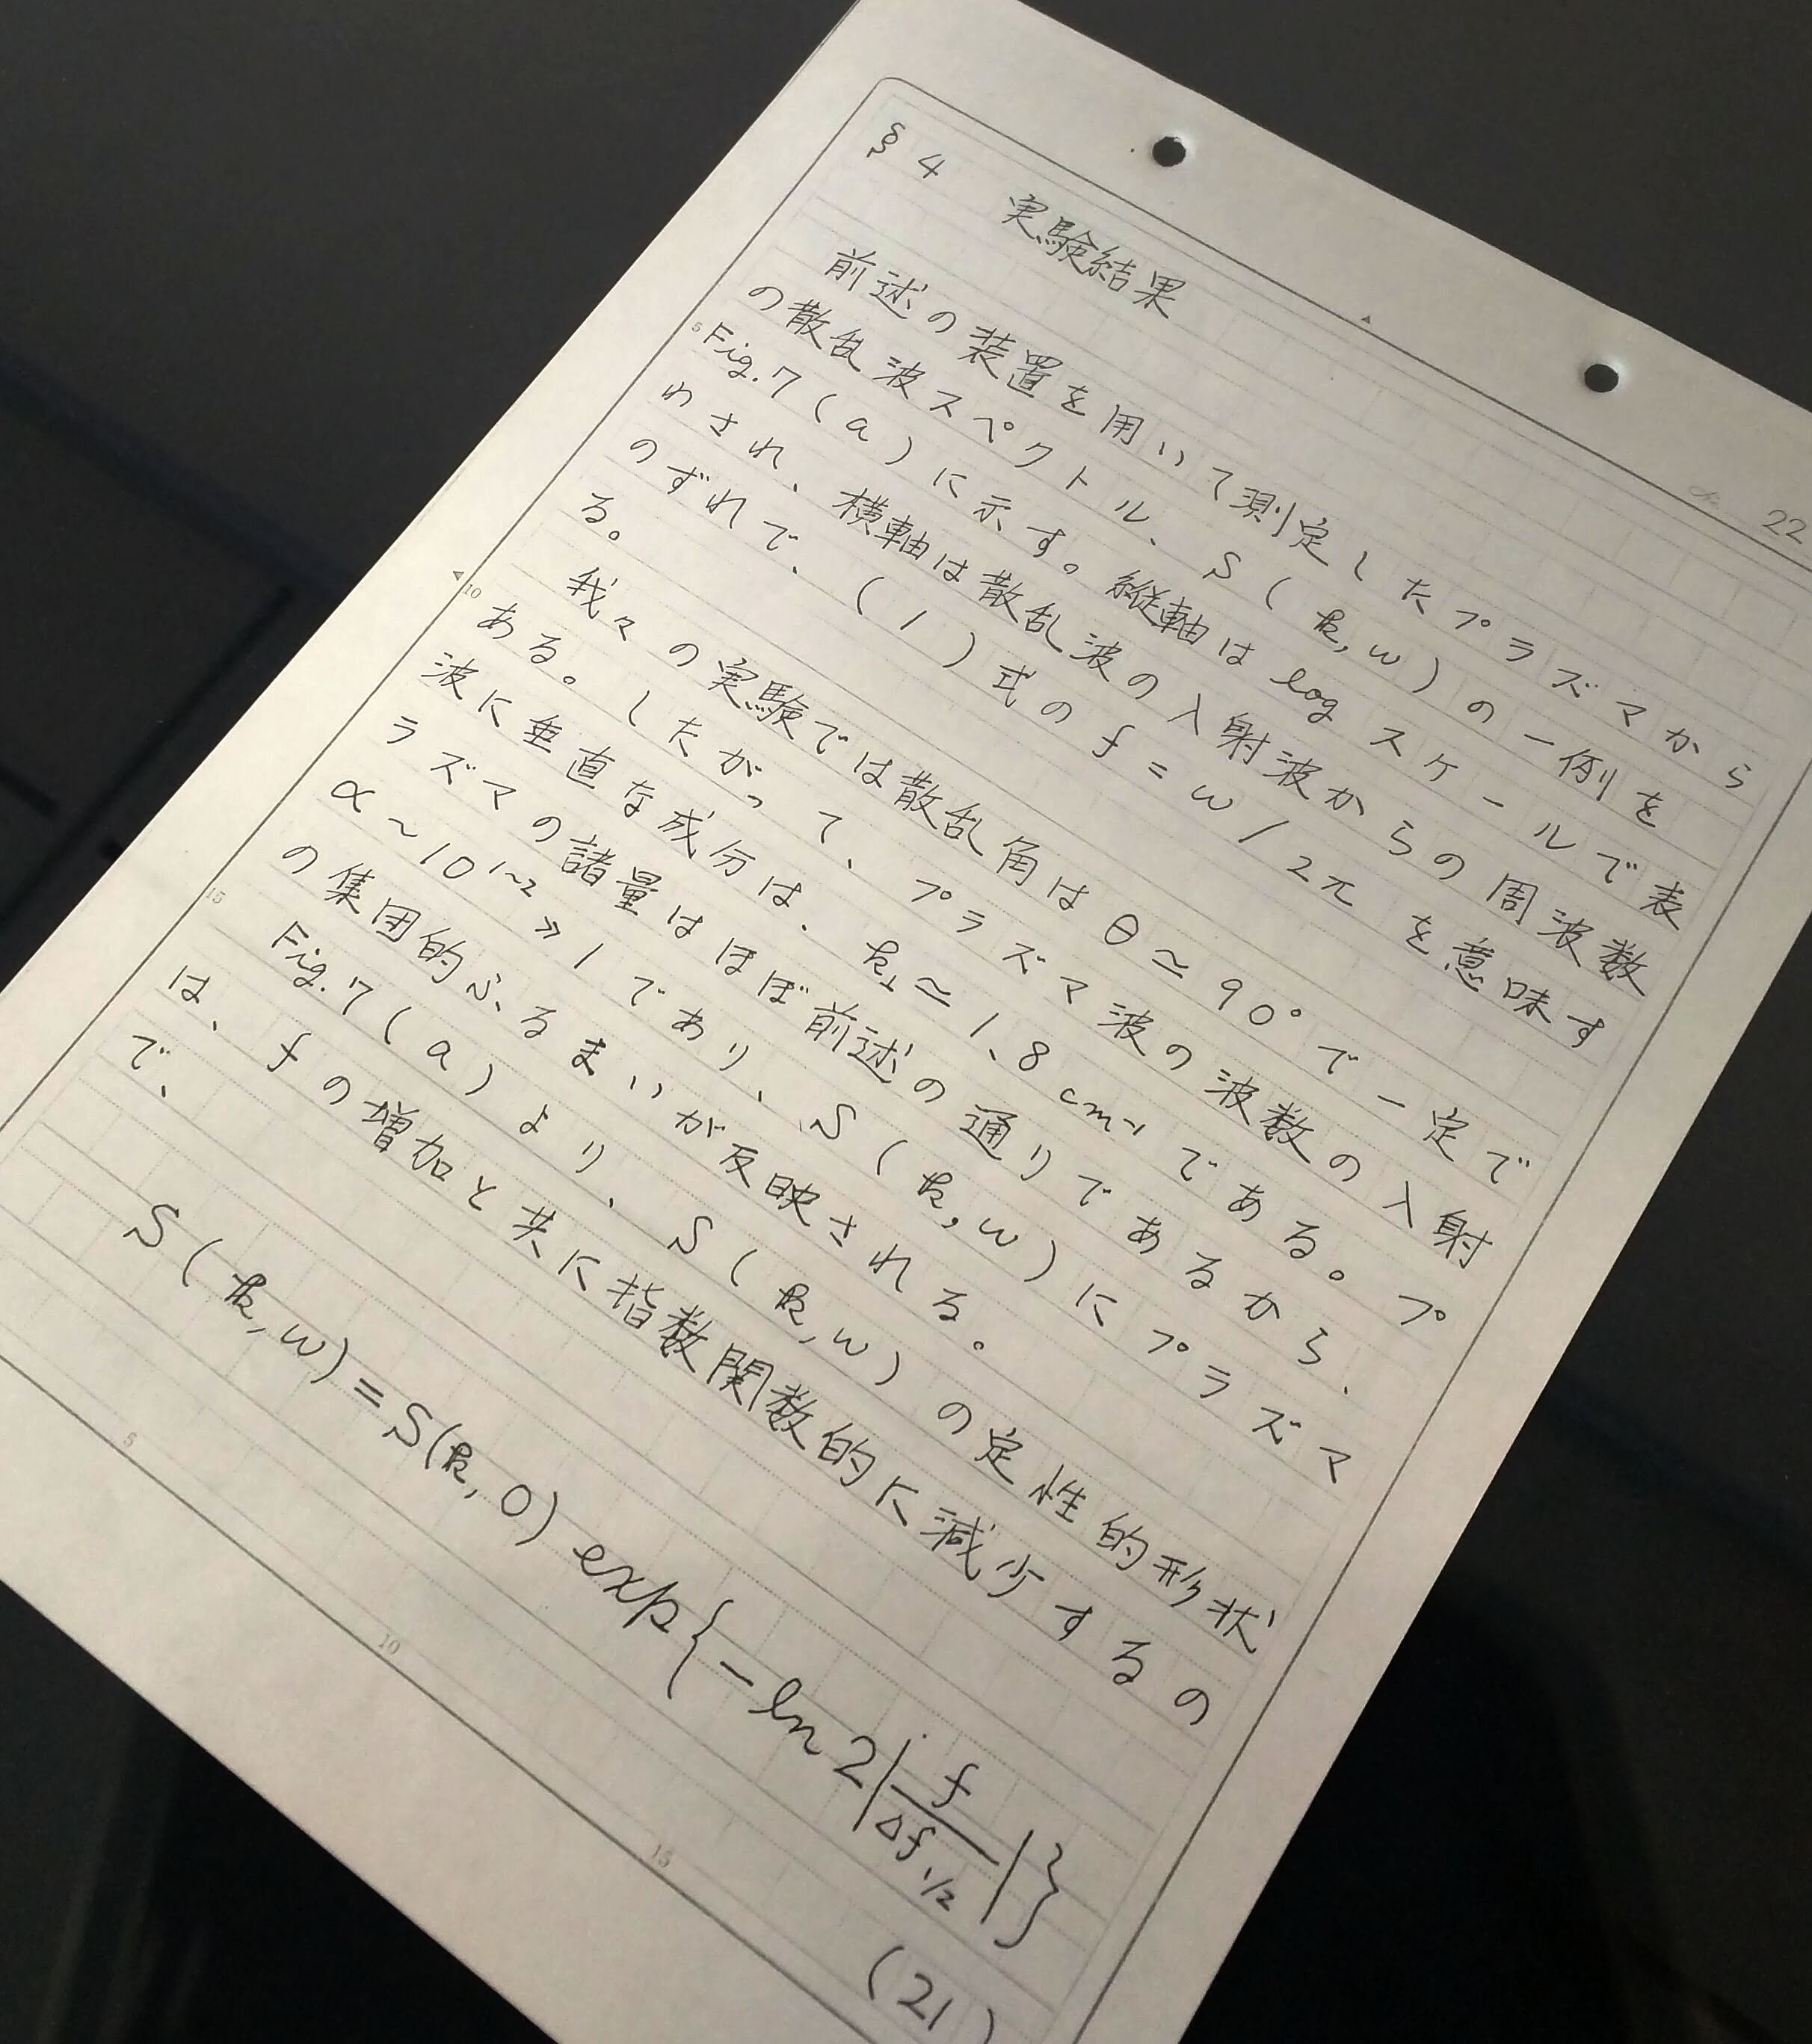 22
§4 実験結果
前述の装置を用いて測定したプラズマから
の散乱波スペクトル、S(k,ω)の一例を
Fig.7(a)に示す。縦軸はlogスケールで表
わされ、横軸は散乱波の入射波からの周波数
のずれで、(1)式のf=ω/2πを意味す
る。
我々の実験では散乱角はθ≃90°で一定で
ある。したがって、プラズマ波の波数の入射
波に垂直な成分は、k⊥≈1.8cm⁻¹である。プ
ラズマの諸量はほぼ前述の通りであるから、
α~10¹~²≫1であり、S(k,ω)にプラズマ
の集団的ふるまいが反映される。
Fig.7(a)より、S(k,ω)の定性的形状
は、fの増加と共に指数関数的に減少するの
で、
S(k,ω)=S(k,0)exp{-ln2|f/Δf1/2|}
(21)
5
10
15
5
10
15